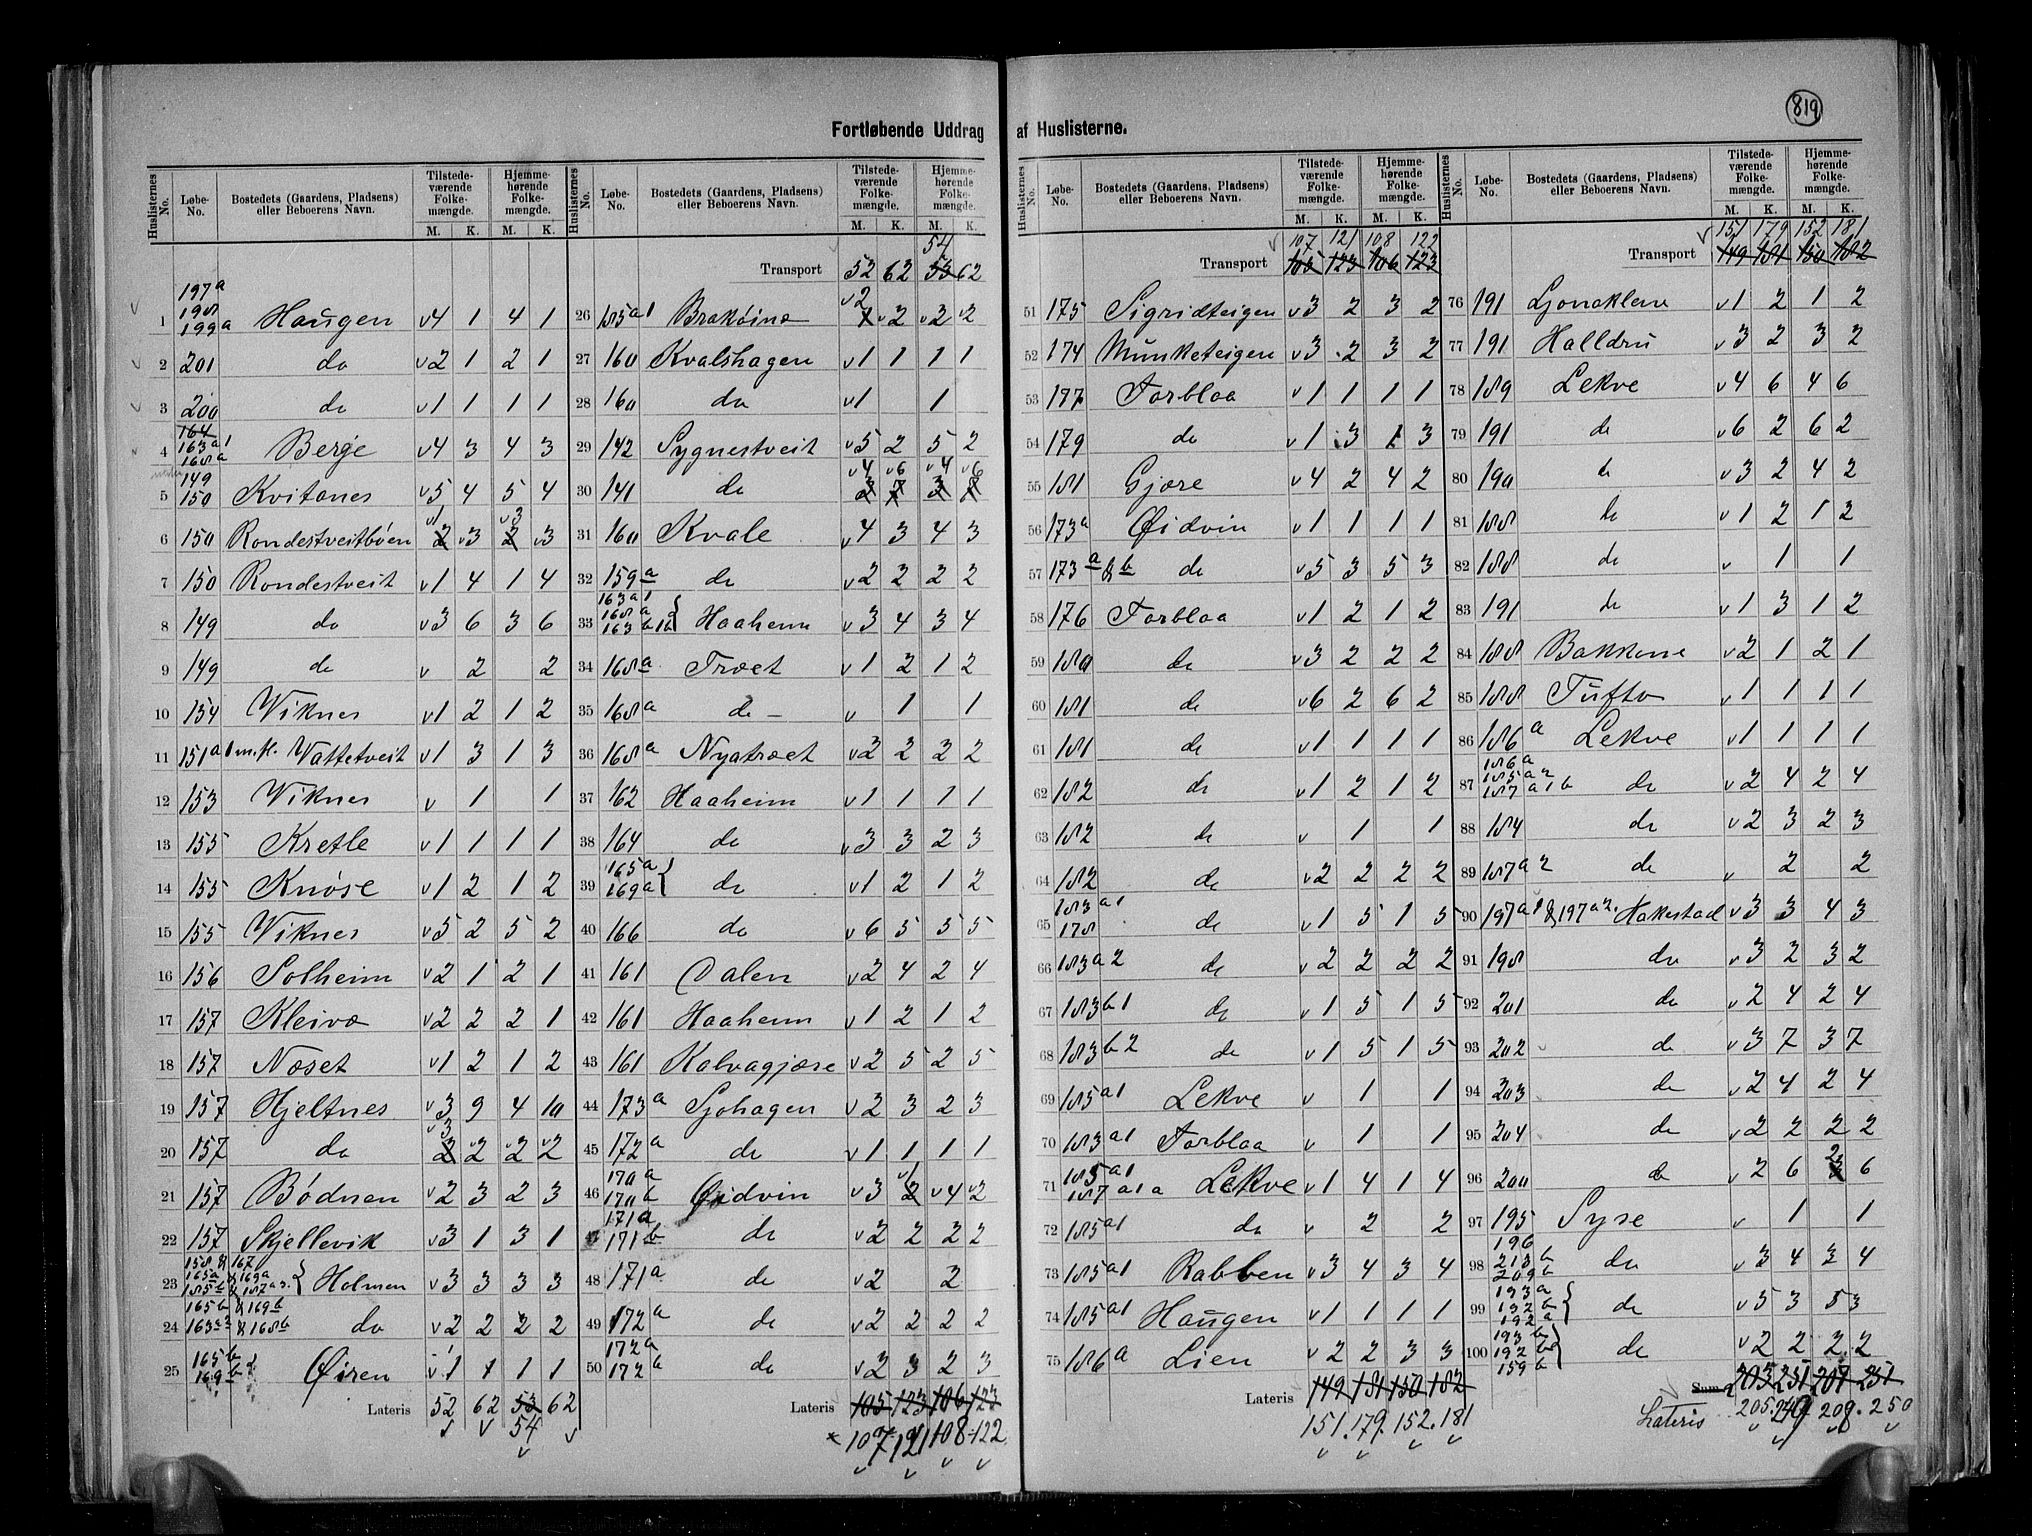 819
Fortløbende Uddrag af Huslisterne.
Huslisternes No. | Løbe-No. | Bostedets (Gaardens, Pladsen) eller Beboerens Navn. | Tilstedeværende Folkemængde. M. K. | Hjemmehørende Folkemængde. M. K.
1 197a 198 199a Haugen 4 1 4 1
2 201 do 2 1 2 1
3 200 do 1 1 1 1
4 164 163a1 168a Berge 4 3 4 3
5 149 150 Kvitanes 5 4 5 4
6 150 Rondestveitbøen 1 3 3 3
7 150 Rondestveit 1 4 1 4
8 149 do 3 6 3 6
9 149 do 2 2
10 154 Viknes 1 2 1 2
11 151a1 m.fl. Vattetveit 1 3 1 3
12 153 Viknes 1 1
13 155 Kretle 1 1 1 1
14 155 Knøse 1 2 1 2
15 155 Viknes 5 2 5 2
16 156 Solheim 2 1 2 1
17 157 Kleivo 2 2 2 1
18 157 Næset 1 2 1 2
19 157 Hjeltnes 3 9 4 10
20 157 do 3 2 2 2
21 157 Bødnen 2 3 2 3
22 157 Skjellevik 3 1 3 1
23 158 & 167 165a & 169a 185b & 187a3 Holmen 3 3 3 3
24 165b & 169b 163a3 & 168b do 2 2 2 2
25 165b 169b Øiren 1 1 1 1
Lateris 52 62 53 62
54
Transport 52 62 53 62
54
26 185a1 Brakøinæ 2 2 2 2
27 160 Kvalshagen 1 1 1 1
28 160 do 1 1
29 142 Sygnestveit 5 2 5 2
30 141 do 4 6 4 6
31 160 Kvale 4 3 4 3
32 159a do 2 2 2 2
33 163a1 168a 163b1b Haaheim 3 4 3 4
34 168a Træet 1 2 1 2
35 168a do 1 1
36 168a Nyatræet 2 2 2 2
37 162 Haaheim 1 1 1 1
38 164 do 3 3 2 3
39 165a 169a do 1 2 1 2
40 166 do 6 5 5 5
41 161 Dalen 2 4 2 4
42 161 Haaheim 1 2 1 2
43 161 Kalvagjære 2 5 2 5
44 173a Sjohagen 2 3 2 3
45 172a do 1 1 1 1
46 170a 170b Øidvin 3 1 4 2
47 171a 171b do 2 2 2 2
48 171a do 2 2
49 172a do 2 2 2 2
50 172a 172a do 2 3 2 3
Lateris 105 123 106 123
107 121 108 122
107 121 108 122
Transport 105 123 106 123
51 175 Sigridteigen 3 2 3 2
52 174 Munketeigen 3 2 3 2
53 177 Torbloa 1 1 1 1
54 179 do 1 3 1 3
55 181 Gjøre 4 2 4 2
56 173a Øidvin 1 1 1 1
57 173a & b do 5 3 5 3
58 176 Torbloa 1 2 1 2
59 180 do 3 2 2 2
60 181 do 6 2 6 2
61 181 do 1 1 1 1
62 182 do 1 2 1 2
63 182 do 1 1
64 182 do 2 2 2 2
65 183a1 178 do 1 5 1 5
66 183a2 do 2 2 2 2
67 183b1 do 1 5 1 5
68 183b2 do 1 5 1 5
69 185a1 Lekve 1 1
70 183a1 Torbloa 1 1
71 185a1 187a1a Lekve 1 4 1 4
72 185a1 do 2 2
73 185a1 Rabben 3 4 3 4
74 185a1 Haugen 1 1 1 1
75 186a Lien 2 2 3 3
Lateris 149 181 150 182
151. 179. 152. 181
151 179 152 181
Transport 149 181 150 182
76 191 Ljonaklen 1 2 1 2
77 191 Halldru 3 2 3 2
78 189 Lekve 4 6 4 6
79 191 do 6 2 6 2
80 190 do 3 2 4 2
81 188 do 1 2 1 2
82 188 do 1 1
83 191 do 1 3 1 2
84 188 Bakkene 2 1 2 1
85 188 Tufto 1 1 1 1
86 186a Lekve 1 1 1 1
87 186a 185a2 187a1b do 2 4 2 4
88 184 do 2 3 2 3
89 187a2 do 2 2
90 197a1 & 197a2. Hakestad 3 3 4 3
91 198 do 3 2 3 2
92 201 do 2 4 2 4
93 202 do 3 7 3 7
94 203 do 2 4 2 4
95 204 do 2 2 2 2
96 200 do 2 6 2 6
97 195 Syse 1 1
98 196 213b 209b do 3 4 3 4
99 193a 132b 192a do 5 3 5 3
100 193b 192b 159b do 2 2 2 2
Sum 203 251 207 251
Lateris 205. 249 208. 250